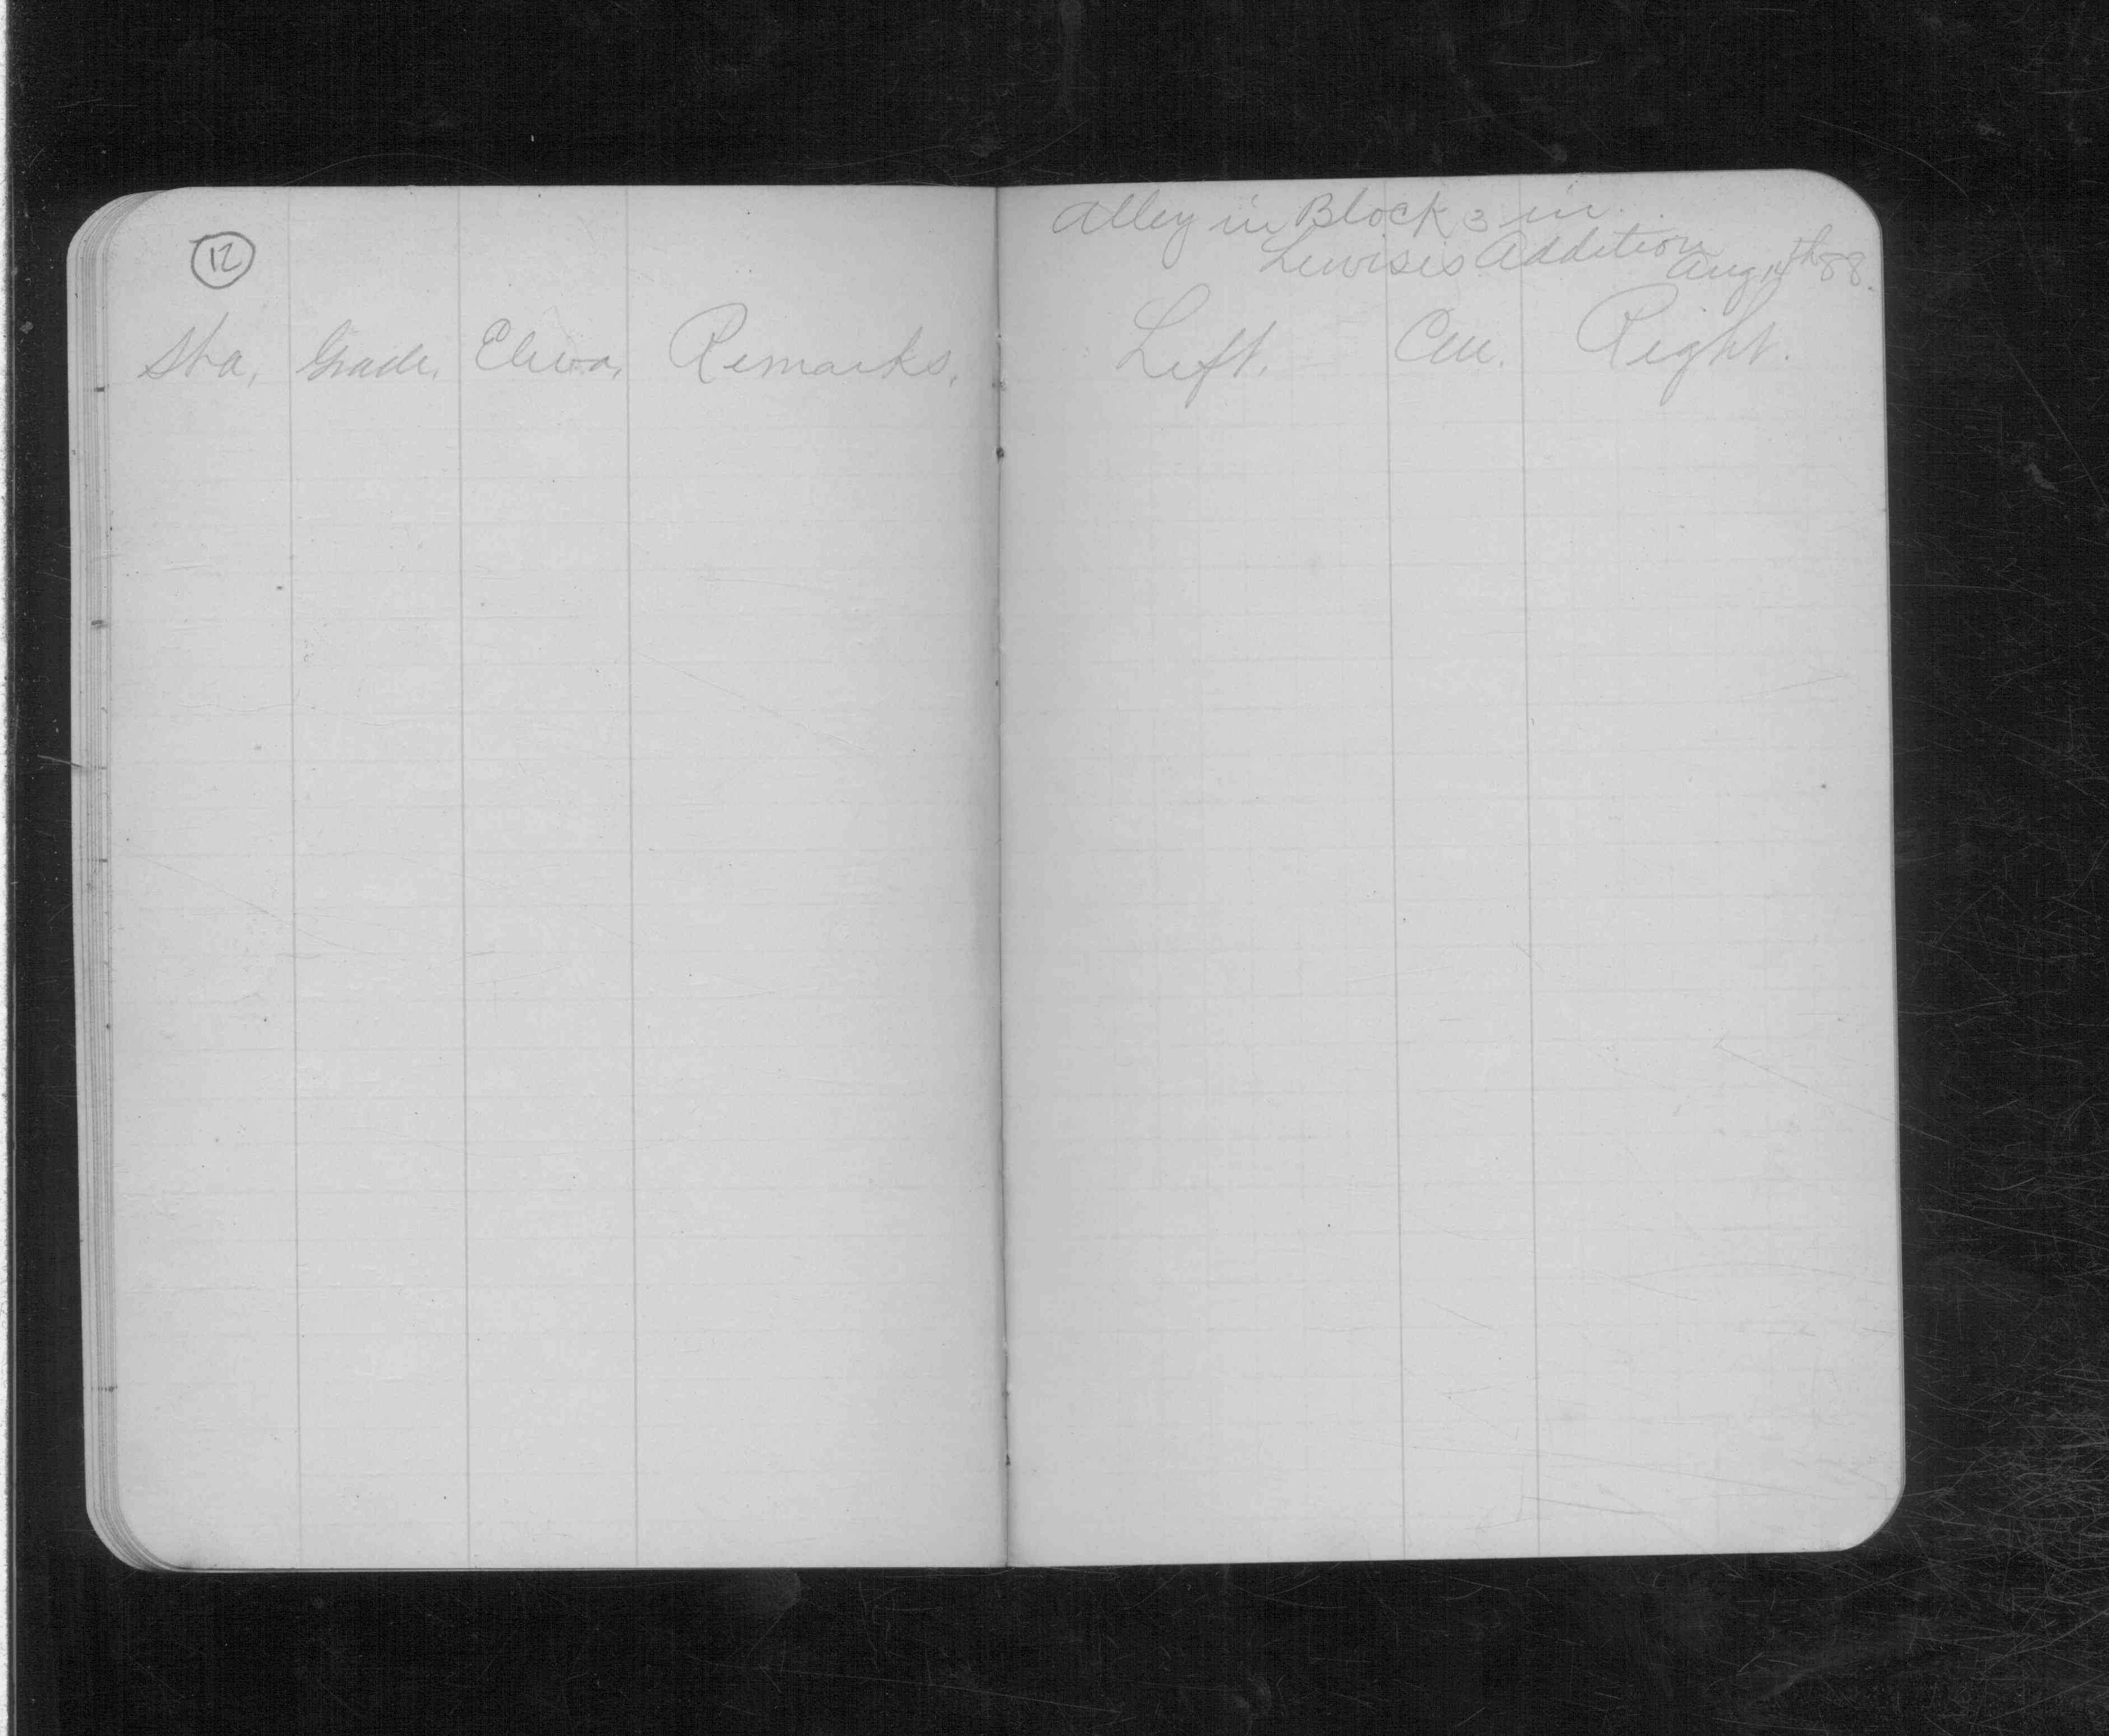 12
Sta. Grade. Eleva. Remarks.
Alley in Block 3 in
Lewises Addition
Aug 14th 88.
Left. Cen. Right.